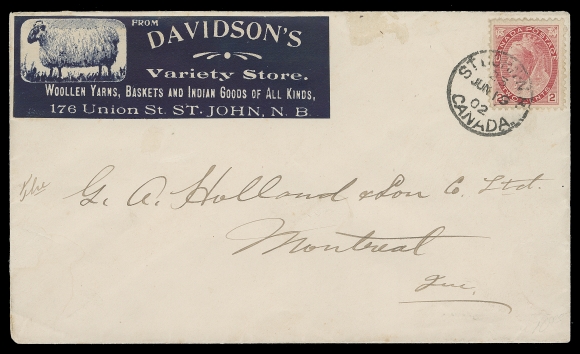 FROM
DAVIDSON'S
Variety Store.
WOOLLEN YARNS, BASKETS AND INDIAN GOODS OF ALL KINDS,
176 Union St. ST. JOHN, N. B.
CANADA POSTAGE
2
JUN
02
CANADA
G. A. Holland & Son C. Ltd.
Montreal
Que.